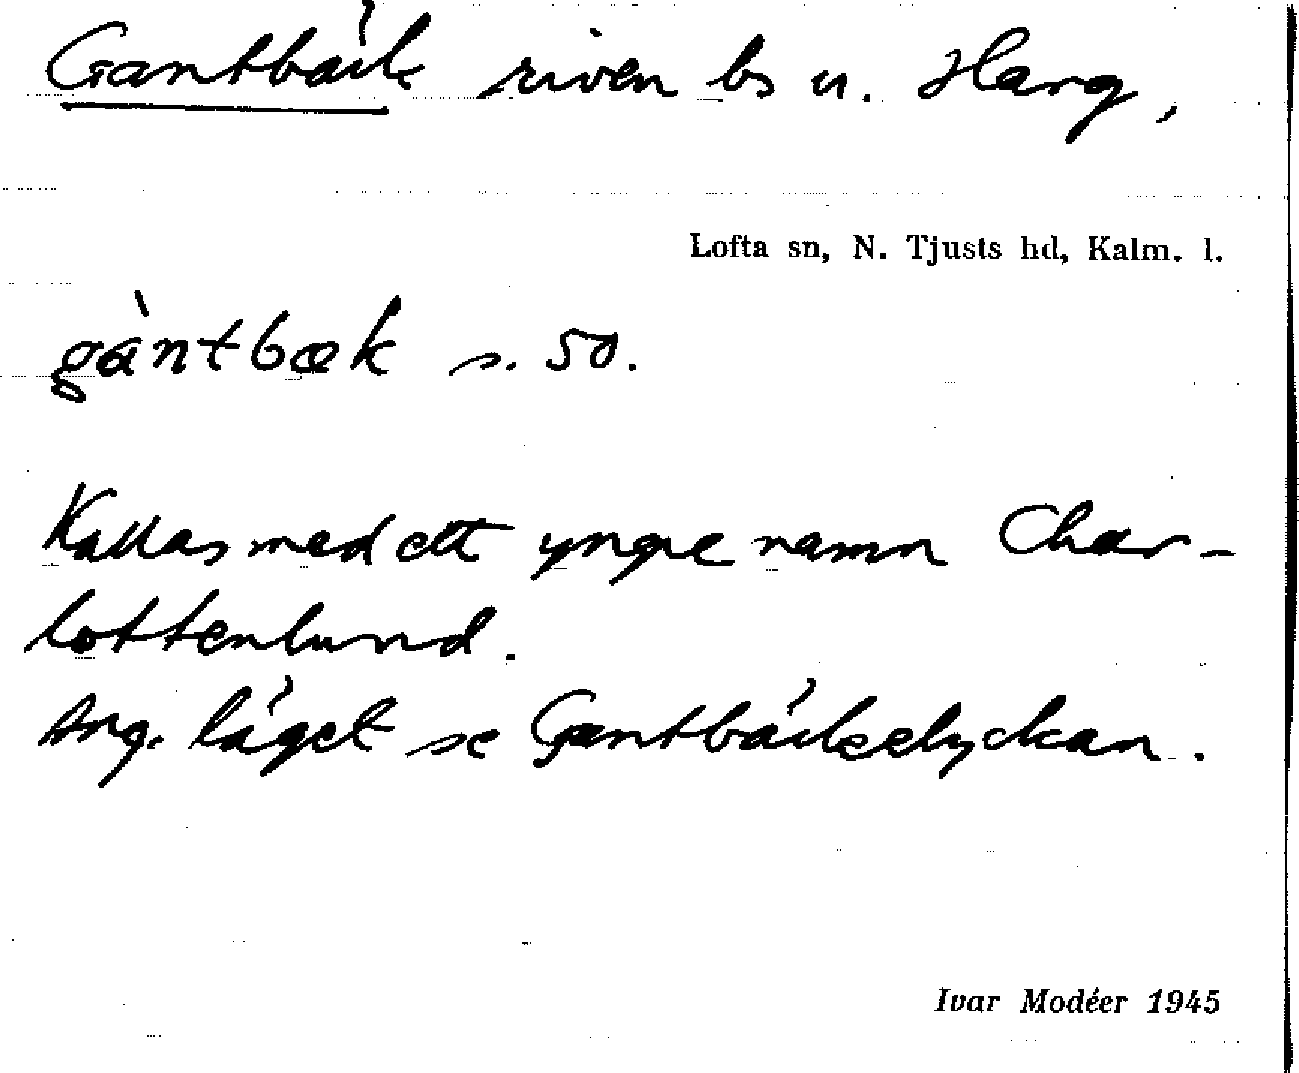 Gantbäck riven bs u. Harg,
Lofta sn, N. Tjusts hd, Kalm. l.
gàntbæk s. 50.
Kallas med ett yngre namn Char-
lottenlund.
Ang. läget se Gantbäckselyckan.
Ivar Modéer 1945